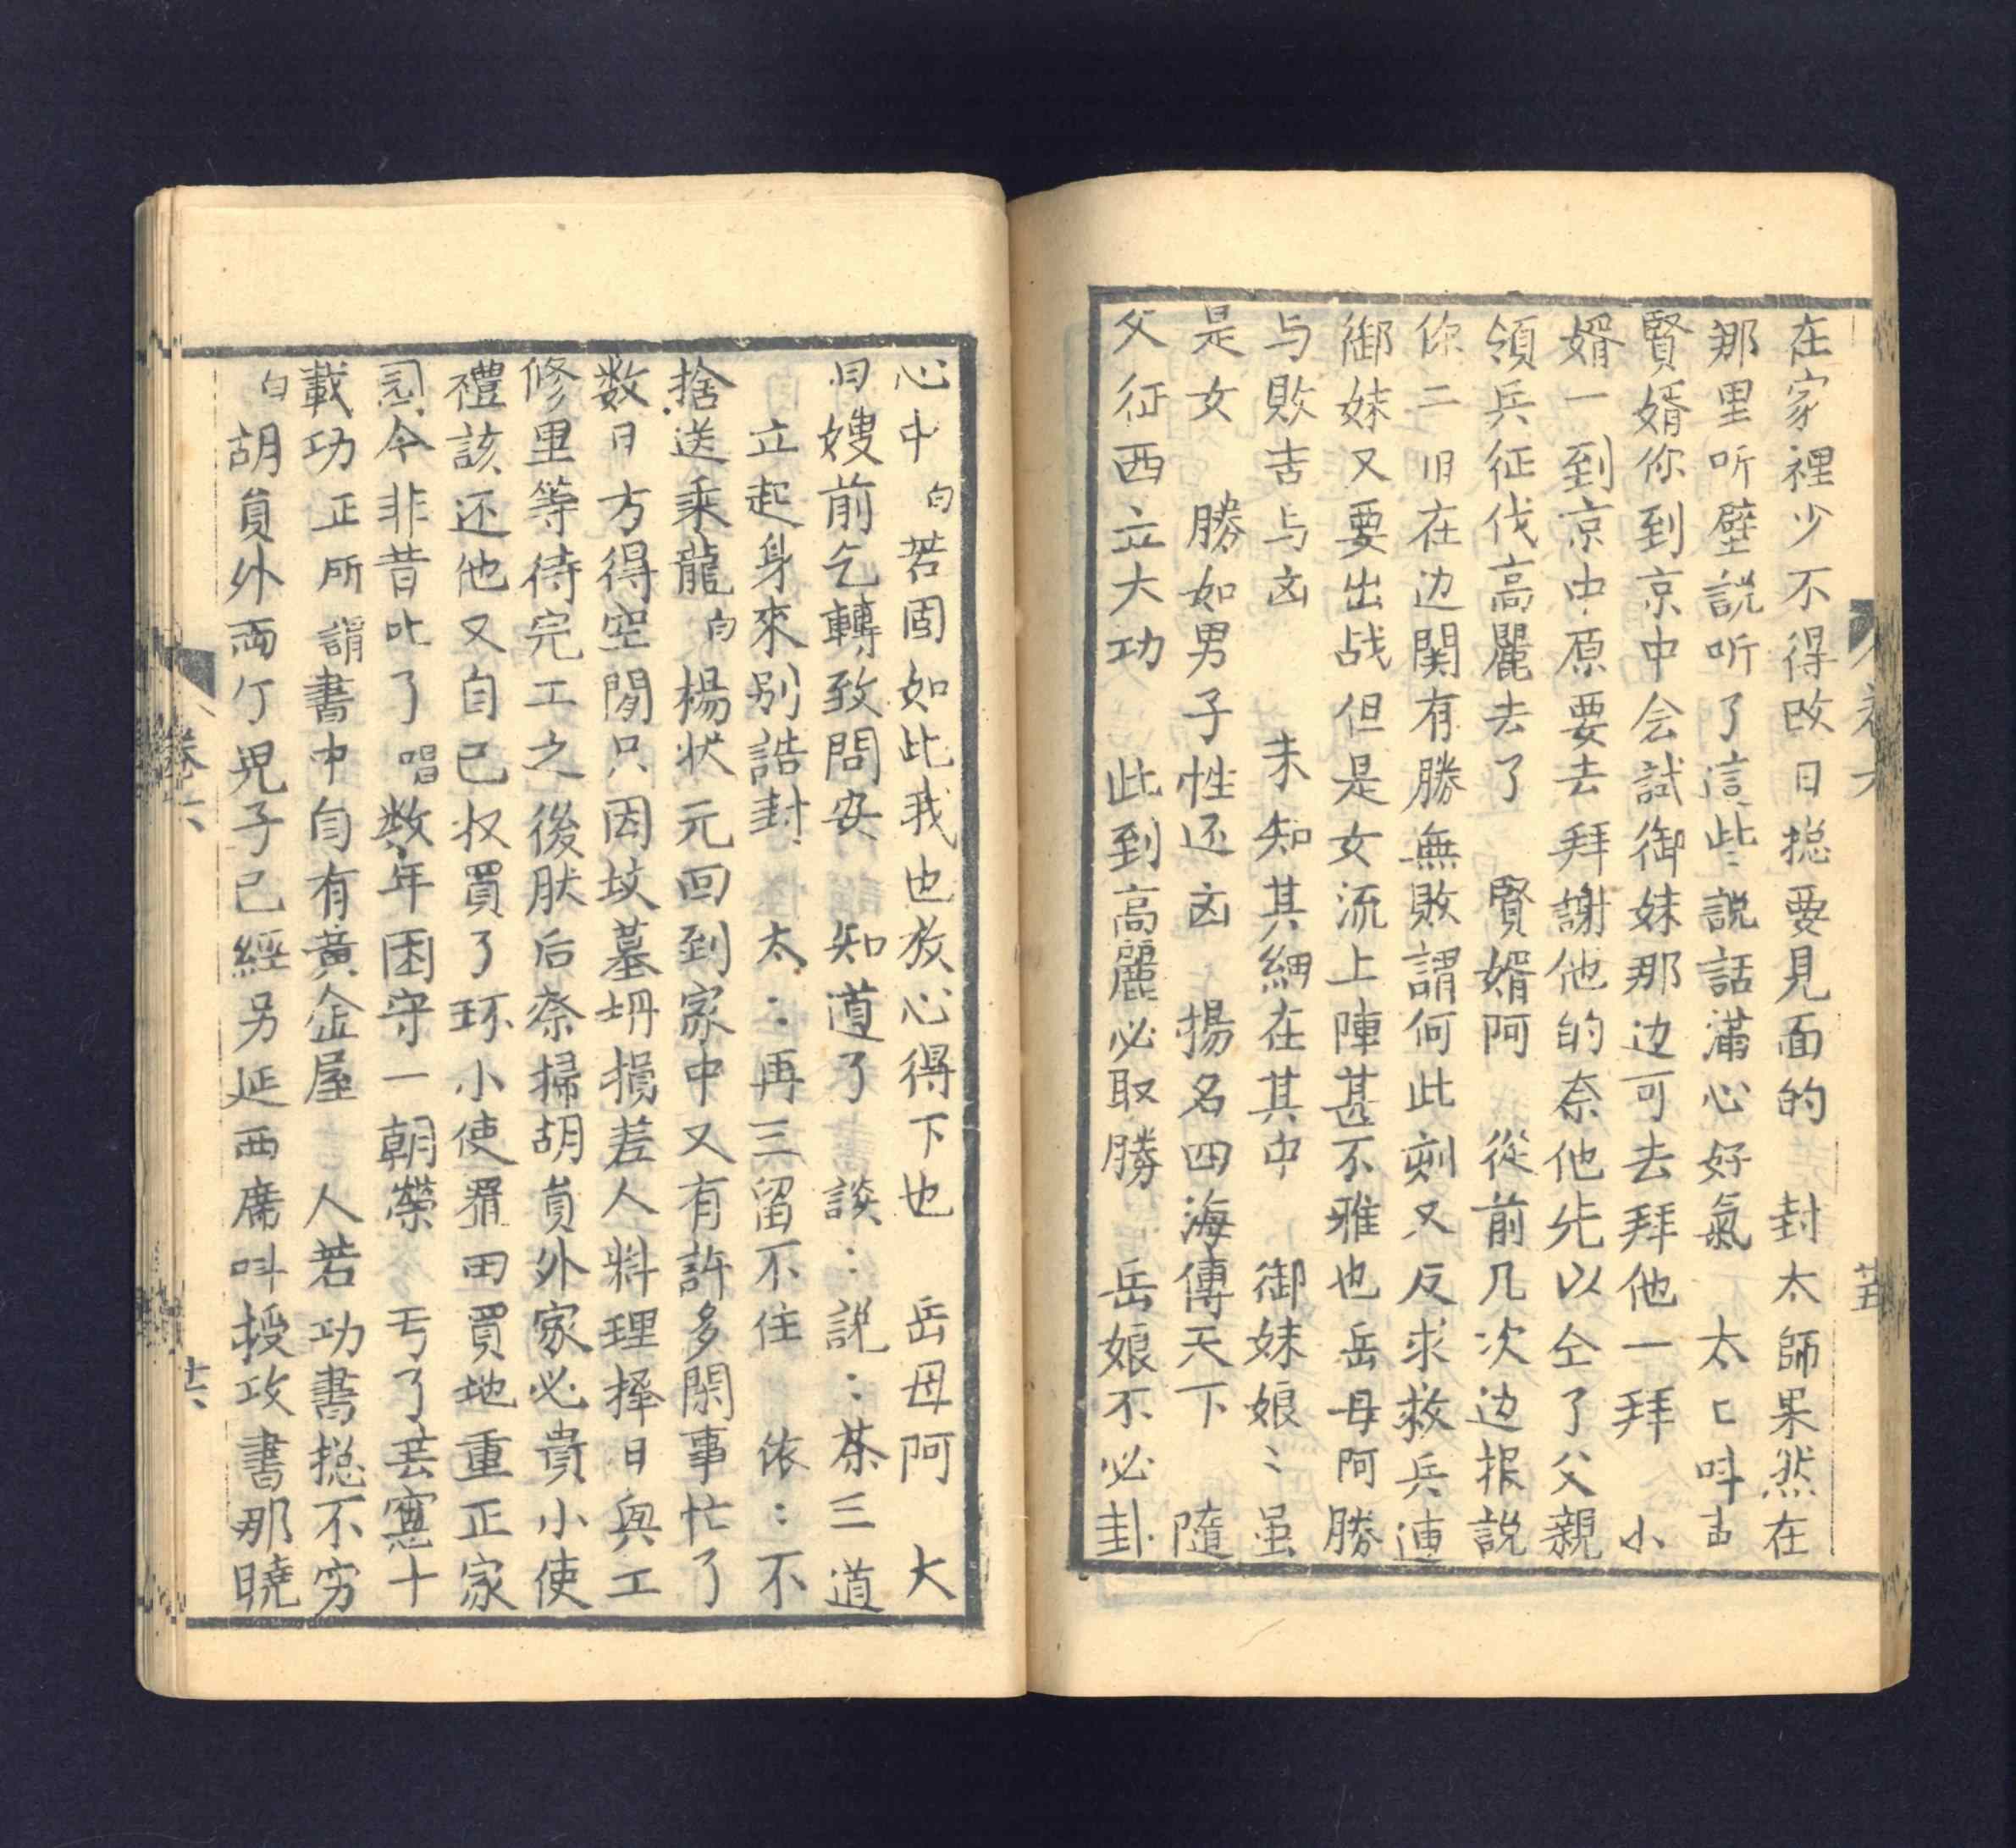 在家裡少不得改日捴要見面的 封太師果然在
那里听壁説听了這些説話滿心好氣 太匕呌声
賢婿你到京中会試御妹那边可去拜他一拜 小
婿一到京中原要去拜謝他的奈他先以仝了父親
領兵征伐高麗去了 賢婿阿 從前几次边报説
你二旧在边関有勝無敗謂何此刻又反求救兵連
御妹又要出战但是女流上陣甚不雅也岳母阿勝
与敗吉与凶 未知其細在其中 御妹娘〻虽
是女 勝如男子性还凶 揚名四海傳天下 隨
父征西立大功 此到高麗必取勝 岳娘不必卦
卷六 廿五
心中 白 若固如此我也放心得下也 岳母阿 大
日嫂前乞轉致問安 知道了 談：説：茶三道
立起身來别誥封 太：再三留不住 依：不
捨送乘龍 白 楊状元回到家中又有許多閑事忙了
数日方得空閒只因坟墓坍損差人料理擇日與工
修里等待完工之後肰后祭掃胡員外家必貴小使
禮該还他又自己收買了环小使置田買地重正家
园今非昔比了 唱 数年困守一朝榮 亏了芸窓十
載功正所謂書中自有黃金屋 人若功書捴不穷
白 胡員外両个児子已經另延西席呌授攻書那曉
卷六 廿六